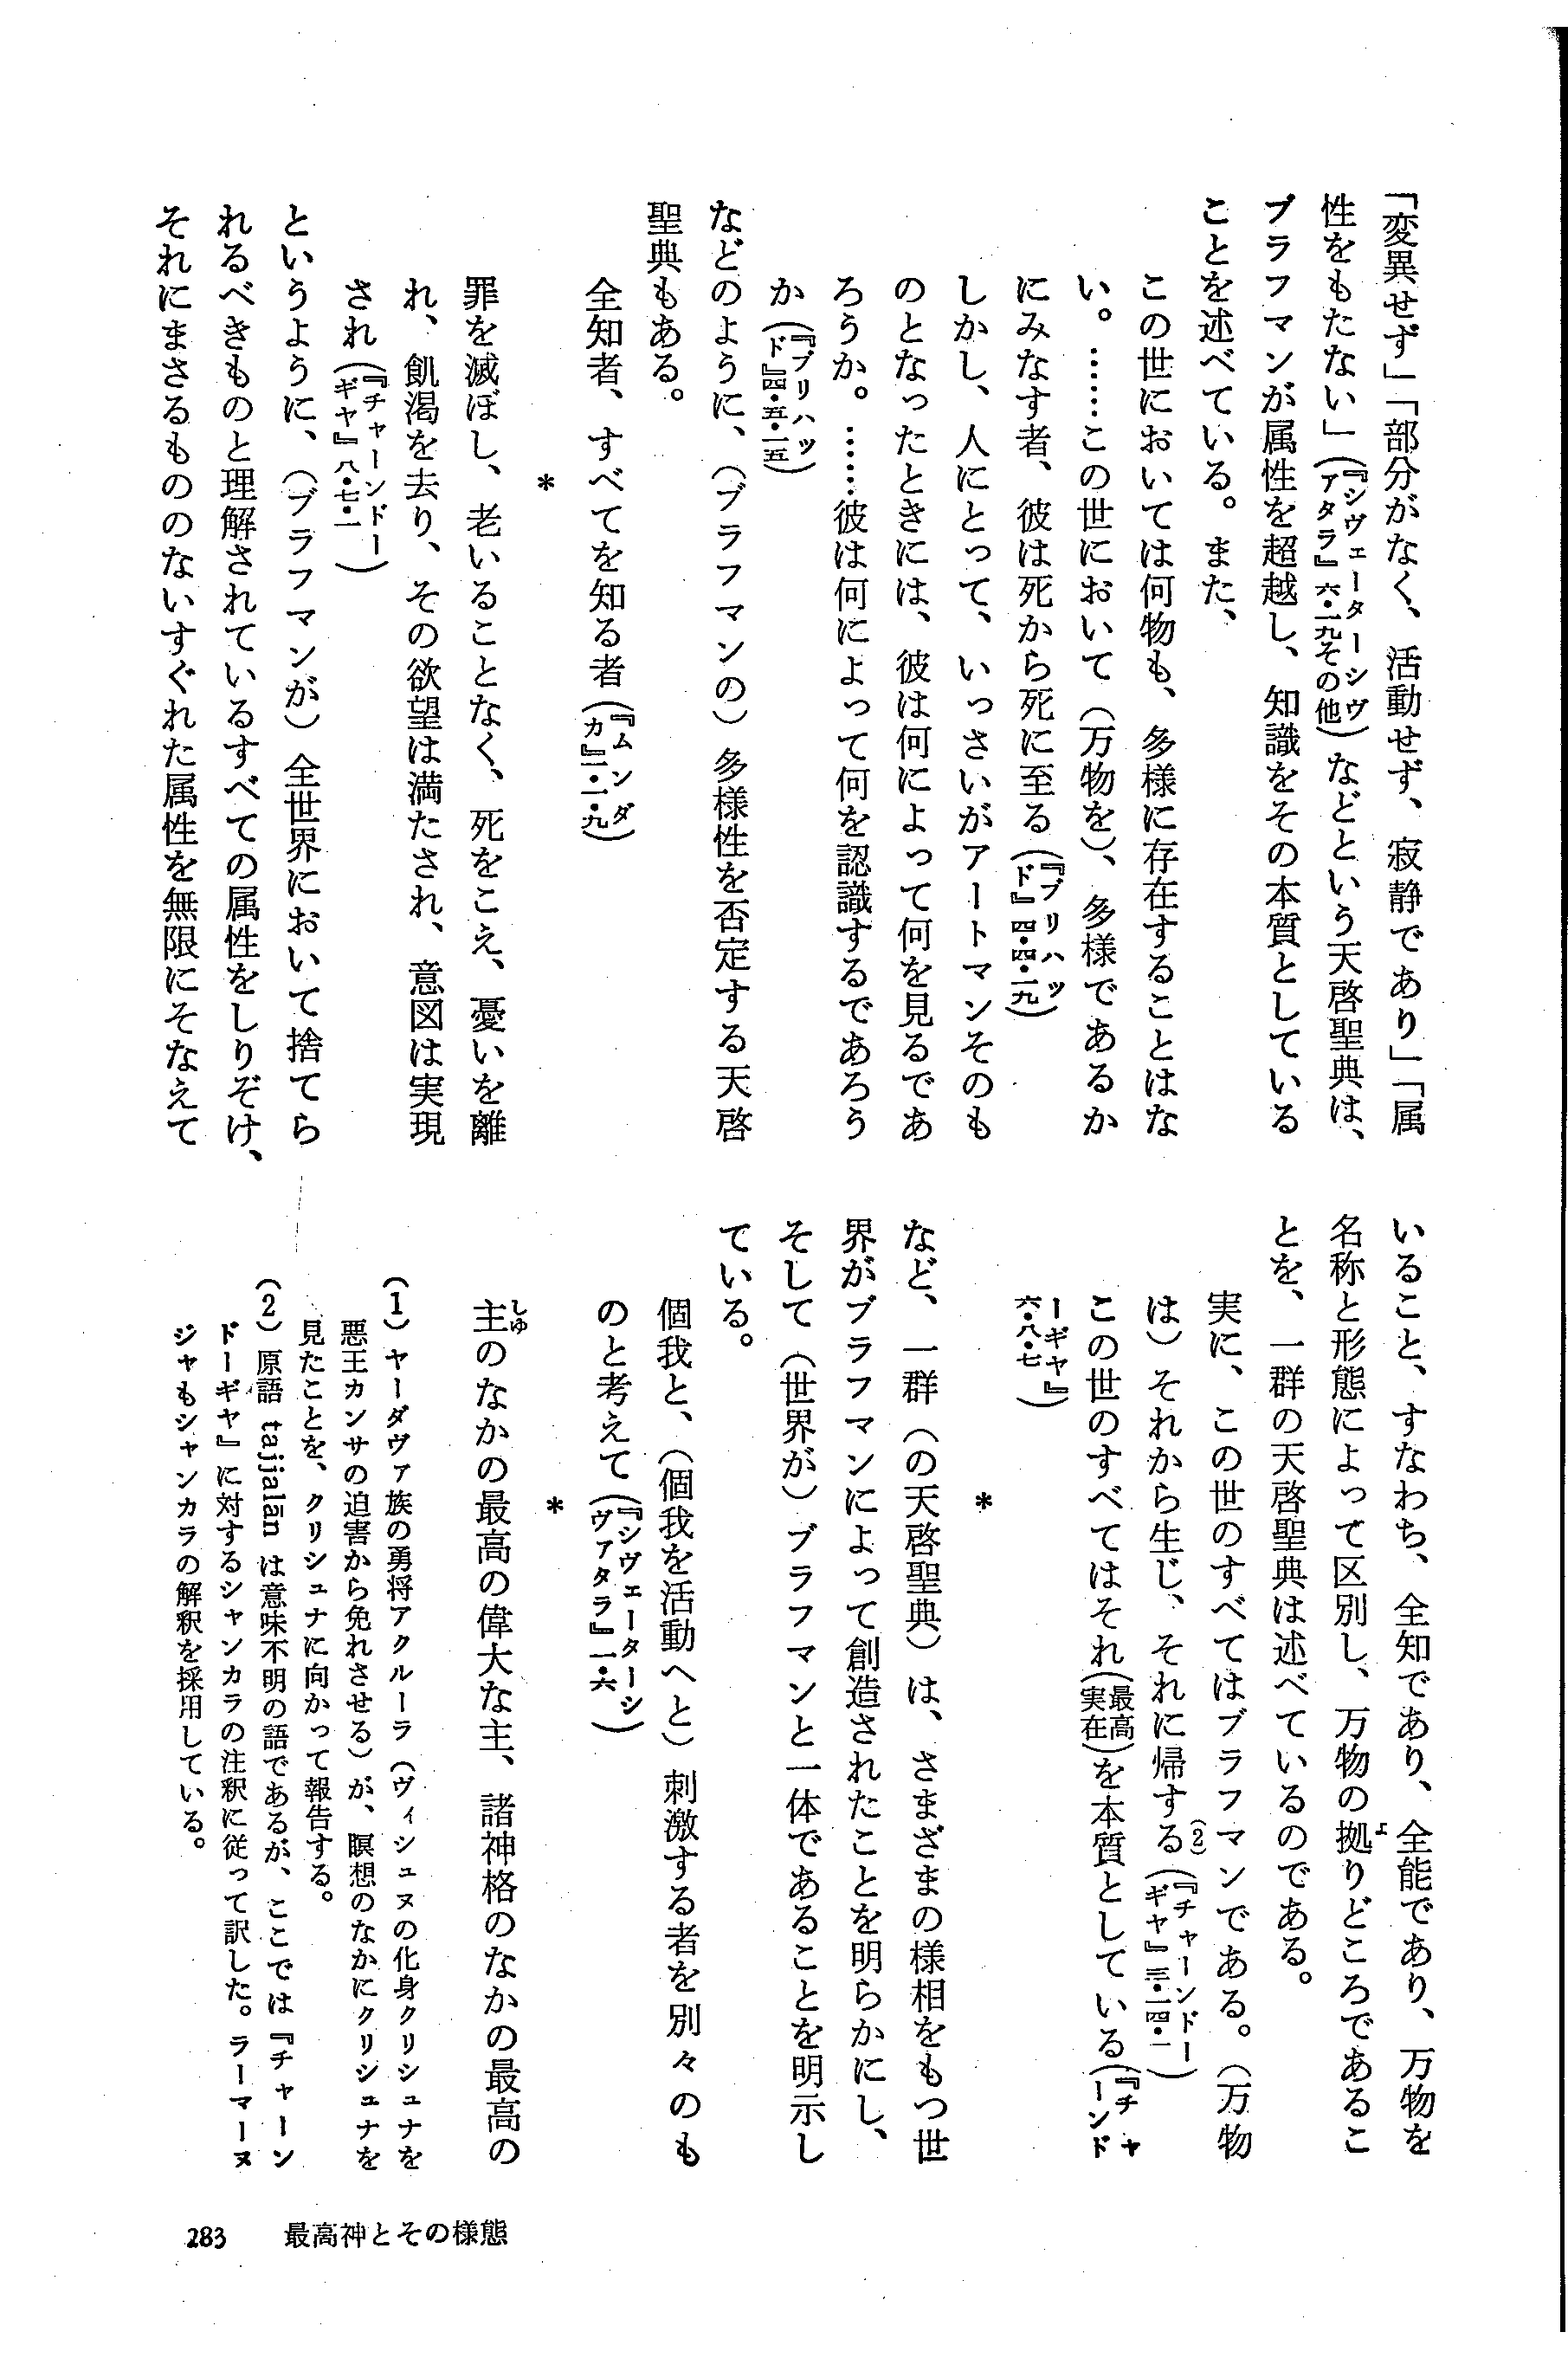 「変異せず」「部分がなく、活動せず、寂静であり」「属
性をもたない」(『シヴェーターシヴァタラ』六・一九その他)などという天啓聖典は、
ブラフマンが属性を超越し、知識をその本質としている
ことを述べている。また、
この世においては何物も、多様に存在することはな
い。……この世において(万物を)、多様であるか
にみなす者、彼は死から死に至る(『ブリハッド』四・四・一九)
しかし、人にとって、いっさいがアートマンそのも
のとなったときには、彼は何によって何を見るであ
ろうか。……彼は何によって何を認識するであろう
か(『ブリハッド』四・五・一五)
などのように、(ブラフマンの)多様性を否定する天啓
聖典もある。
全知者、すべてを知る者(『ムンダカ』一・一・九)
*
罪を滅ぼし、老いることなく、死をこえ、憂いを離
れ、飢渇を去り、その欲望は満たされ、意図は実現
され(『チャーンドーギヤ』八・七・一)
というように、(ブラフマンが)全世界において捨てら
れるべきものと理解されているすべての属性をしりぞけ、
それにまさるもののないすぐれた属性を無限にそなえて
いること、すなわち、全知であり、全能であり、万物を
名称と形態によって区別し、万物の拠りどころであるこ
とを、一群の天啓聖典は述べているのである。
実に、この世のすべてはブラフマンである。(万物
は)それから生じ、それに帰する(2)(『チャーンドーギヤ』三・一四・一)
この世のすべてはそれ(最高実在)を本質としている(『チャーンド
ーギヤ』六・八・七)
*
など、一群(の天啓聖典)は、さまざまの様相をもつ世
界がブラフマンによって創造されたことを明らかにし、
そして(世界が)ブラフマンと一体であることを明示し
ている。
個我と、(個我を活動へと)刺激する者を別々のも
のと考えて(『シヴェーターシヴァタラ』一・六)
*
主のなかの最高の偉大な主、諸神格のなかの最高の
(1)ヤーダヴァ族の勇将アクルーラ(ヴィシュヌの化身クリシュナを
悪王カンサの迫害から免れさせる)が、瞑想のなかにクリシュナを
見たことを、クリシュナに向かって報告する。
(2)原語 tajjalān は意味不明の語であるが、ここでは『チャーン
ドーギヤ』に対するシャンカラの注釈に従って訳した。ラーマーヌ
ジャもシャンカラの解釈を採用している。
283 最高神とその様態